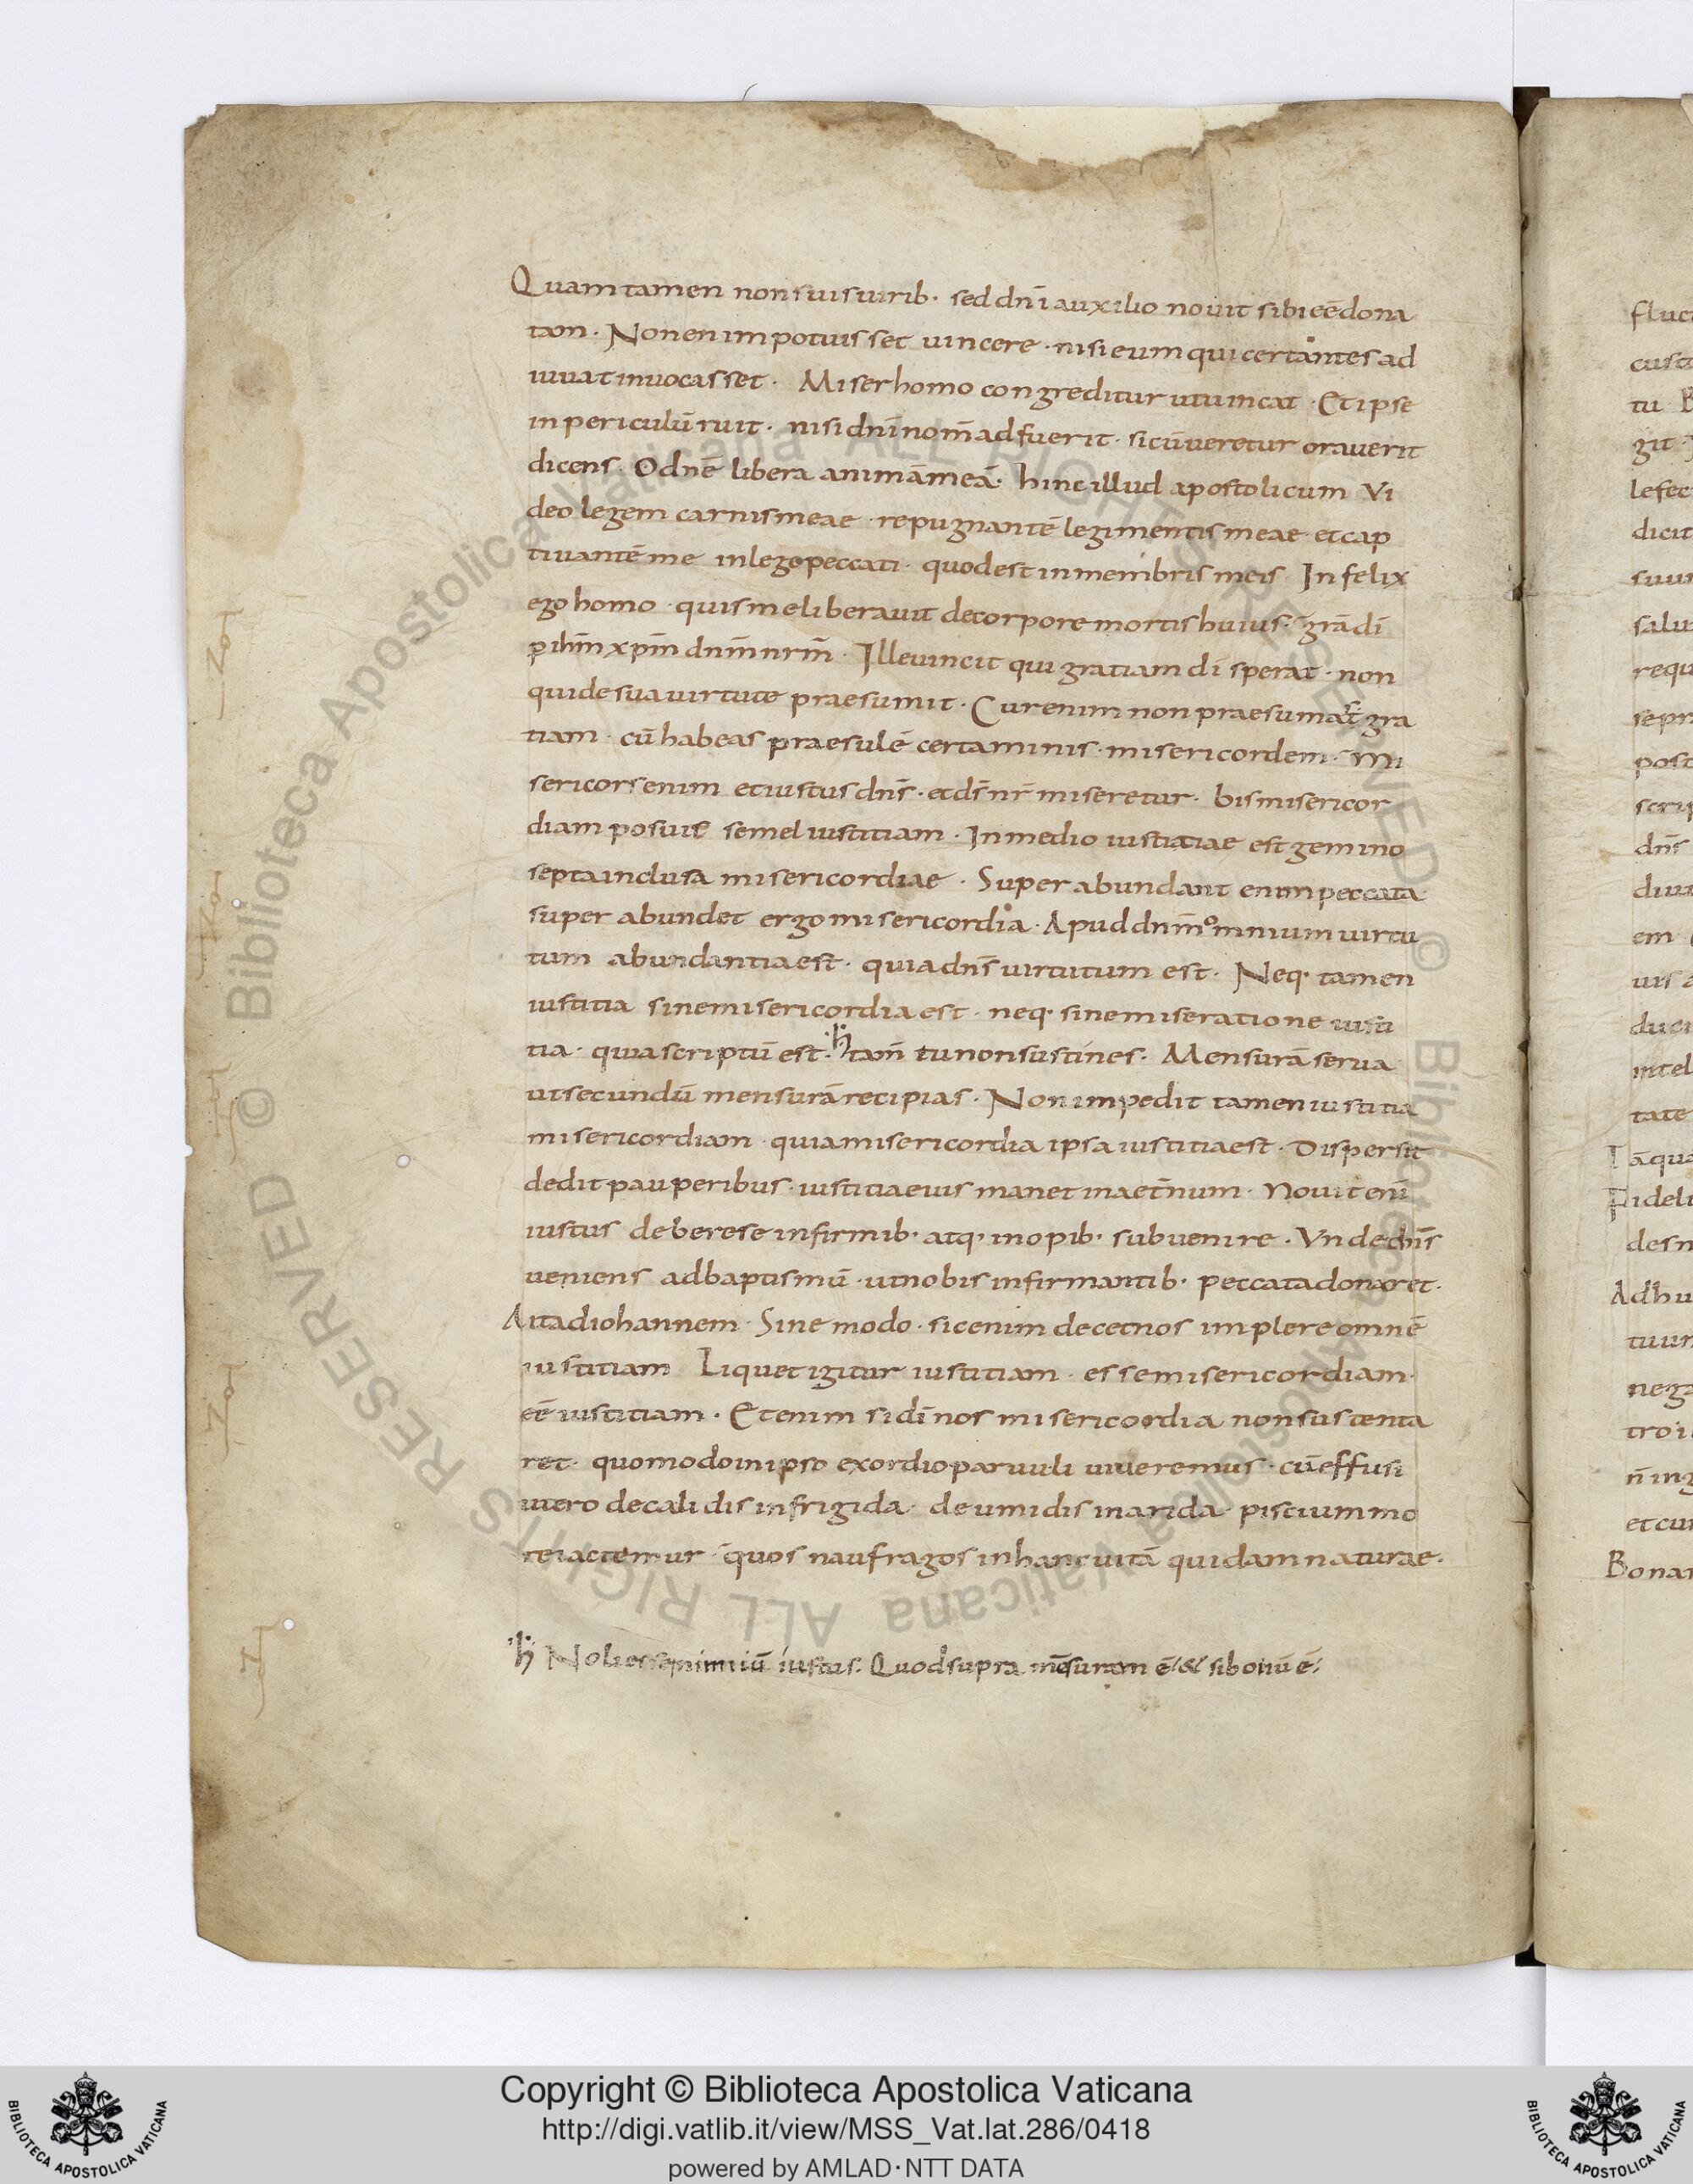 Quam tamen non suis uirib· sed dnī auxilio nouit sibi eē dona
tam · Non enim potuisset uincere · nisi eum qui certantes ad
iuuat inuocasset · Miser homo congreditur ut uincat · Et ipse
in periculū ruit · nisi dnī nom̄ adfuerit · si cū ueretur orauerit
dicens · O dnē libera animā meā · hinc illud apostolicum Vi
deo legem carnis meae · repugnantē legi mentis meae et cap
tiuantē me in lege peccati · quod est in membris meis · Infelix
ego homo · quis me liberauit de corpore mortis huius · grā dī
p ihm̄ xpm̄ dnm̄ nrm̄ · Ille uincit qui gratiam dī sperat · non
qui de sua uirtute praesumit · Cur enim non praesumat gra
tiam · cū habeas praesulē certaminis · misericordem · Mi
sericors enim et iustus dns̄ · et ds̄ nr̄ miseretur · bis misericor
diam posuit semel iustitiam · In medio iustitiae est gemino
septa inclusa misericordiae · Super abundant enim peccata
super abundet ergo misericordia · Apud dnm̄ omnium uirtu
tum abundantia est · quia dns̄ uirtutum est · Neq· tamen
iustitia sine misericordia est · neq· sine miseratione iusti
tia · quia scriptū est · h̄ tam̄ tu non sustines · Mensurā serua
ut secundū mensurā recipias · Non impedit tamen iustitia
misericordiam · quia misericordia ipsa iustitia est · Dispersit
dedit pauperibus · iustitia eius manet in aet̄num · Nouit enī
iustus debere se infirmib· atq· inopib· subuenire · Vnde dns̄
ueniens ad baptismū · ut nobis infirmantib· peccata donaret ·
Ait ad iohannem · Sine modo · sic enim decet nos implere omnē
iustitiam Liquet igitur iustitiam · esse misericordiam ·
eē iustitiam · Etenim si dī nos misericordia non sustenta
ret · quomodo in ipso exordio paruuli uiueremus · cū effusi
utero de calidis in frigida · de umidis in arida · piscium mo
re iactemur · quos naufragos in hanc uitā quidam naturae ·
h̄ Noli esse nimiū iustus · Quod supra mēsuram ē & si bonū ē
fluct
custo
tu B
git
lefec
dicit
suum
salu
requ
sepr
post
scrip
dns̄
diui
em
uis a
duci
intel
tate
Iā qua
Fideli
des n
Adhu
tuum
nega
tro i
n̄ ing
et cum
Bonam
Copyright © Biblioteca Apostolica Vaticana
http://digi.vatlib.it/view/MSS_Vat.lat.286/0418
powered by AMLAD·NTT DATA
© Biblioteca Apostolica Vaticana ALL RIGHTS RESERVED
© Biblioteca Apostolica Vaticana ALL RIGHTS RESERVED
BIBLIOTECA APOSTOLICA VATICANA
BIBLIOTECA APOSTOLICA VATICANA